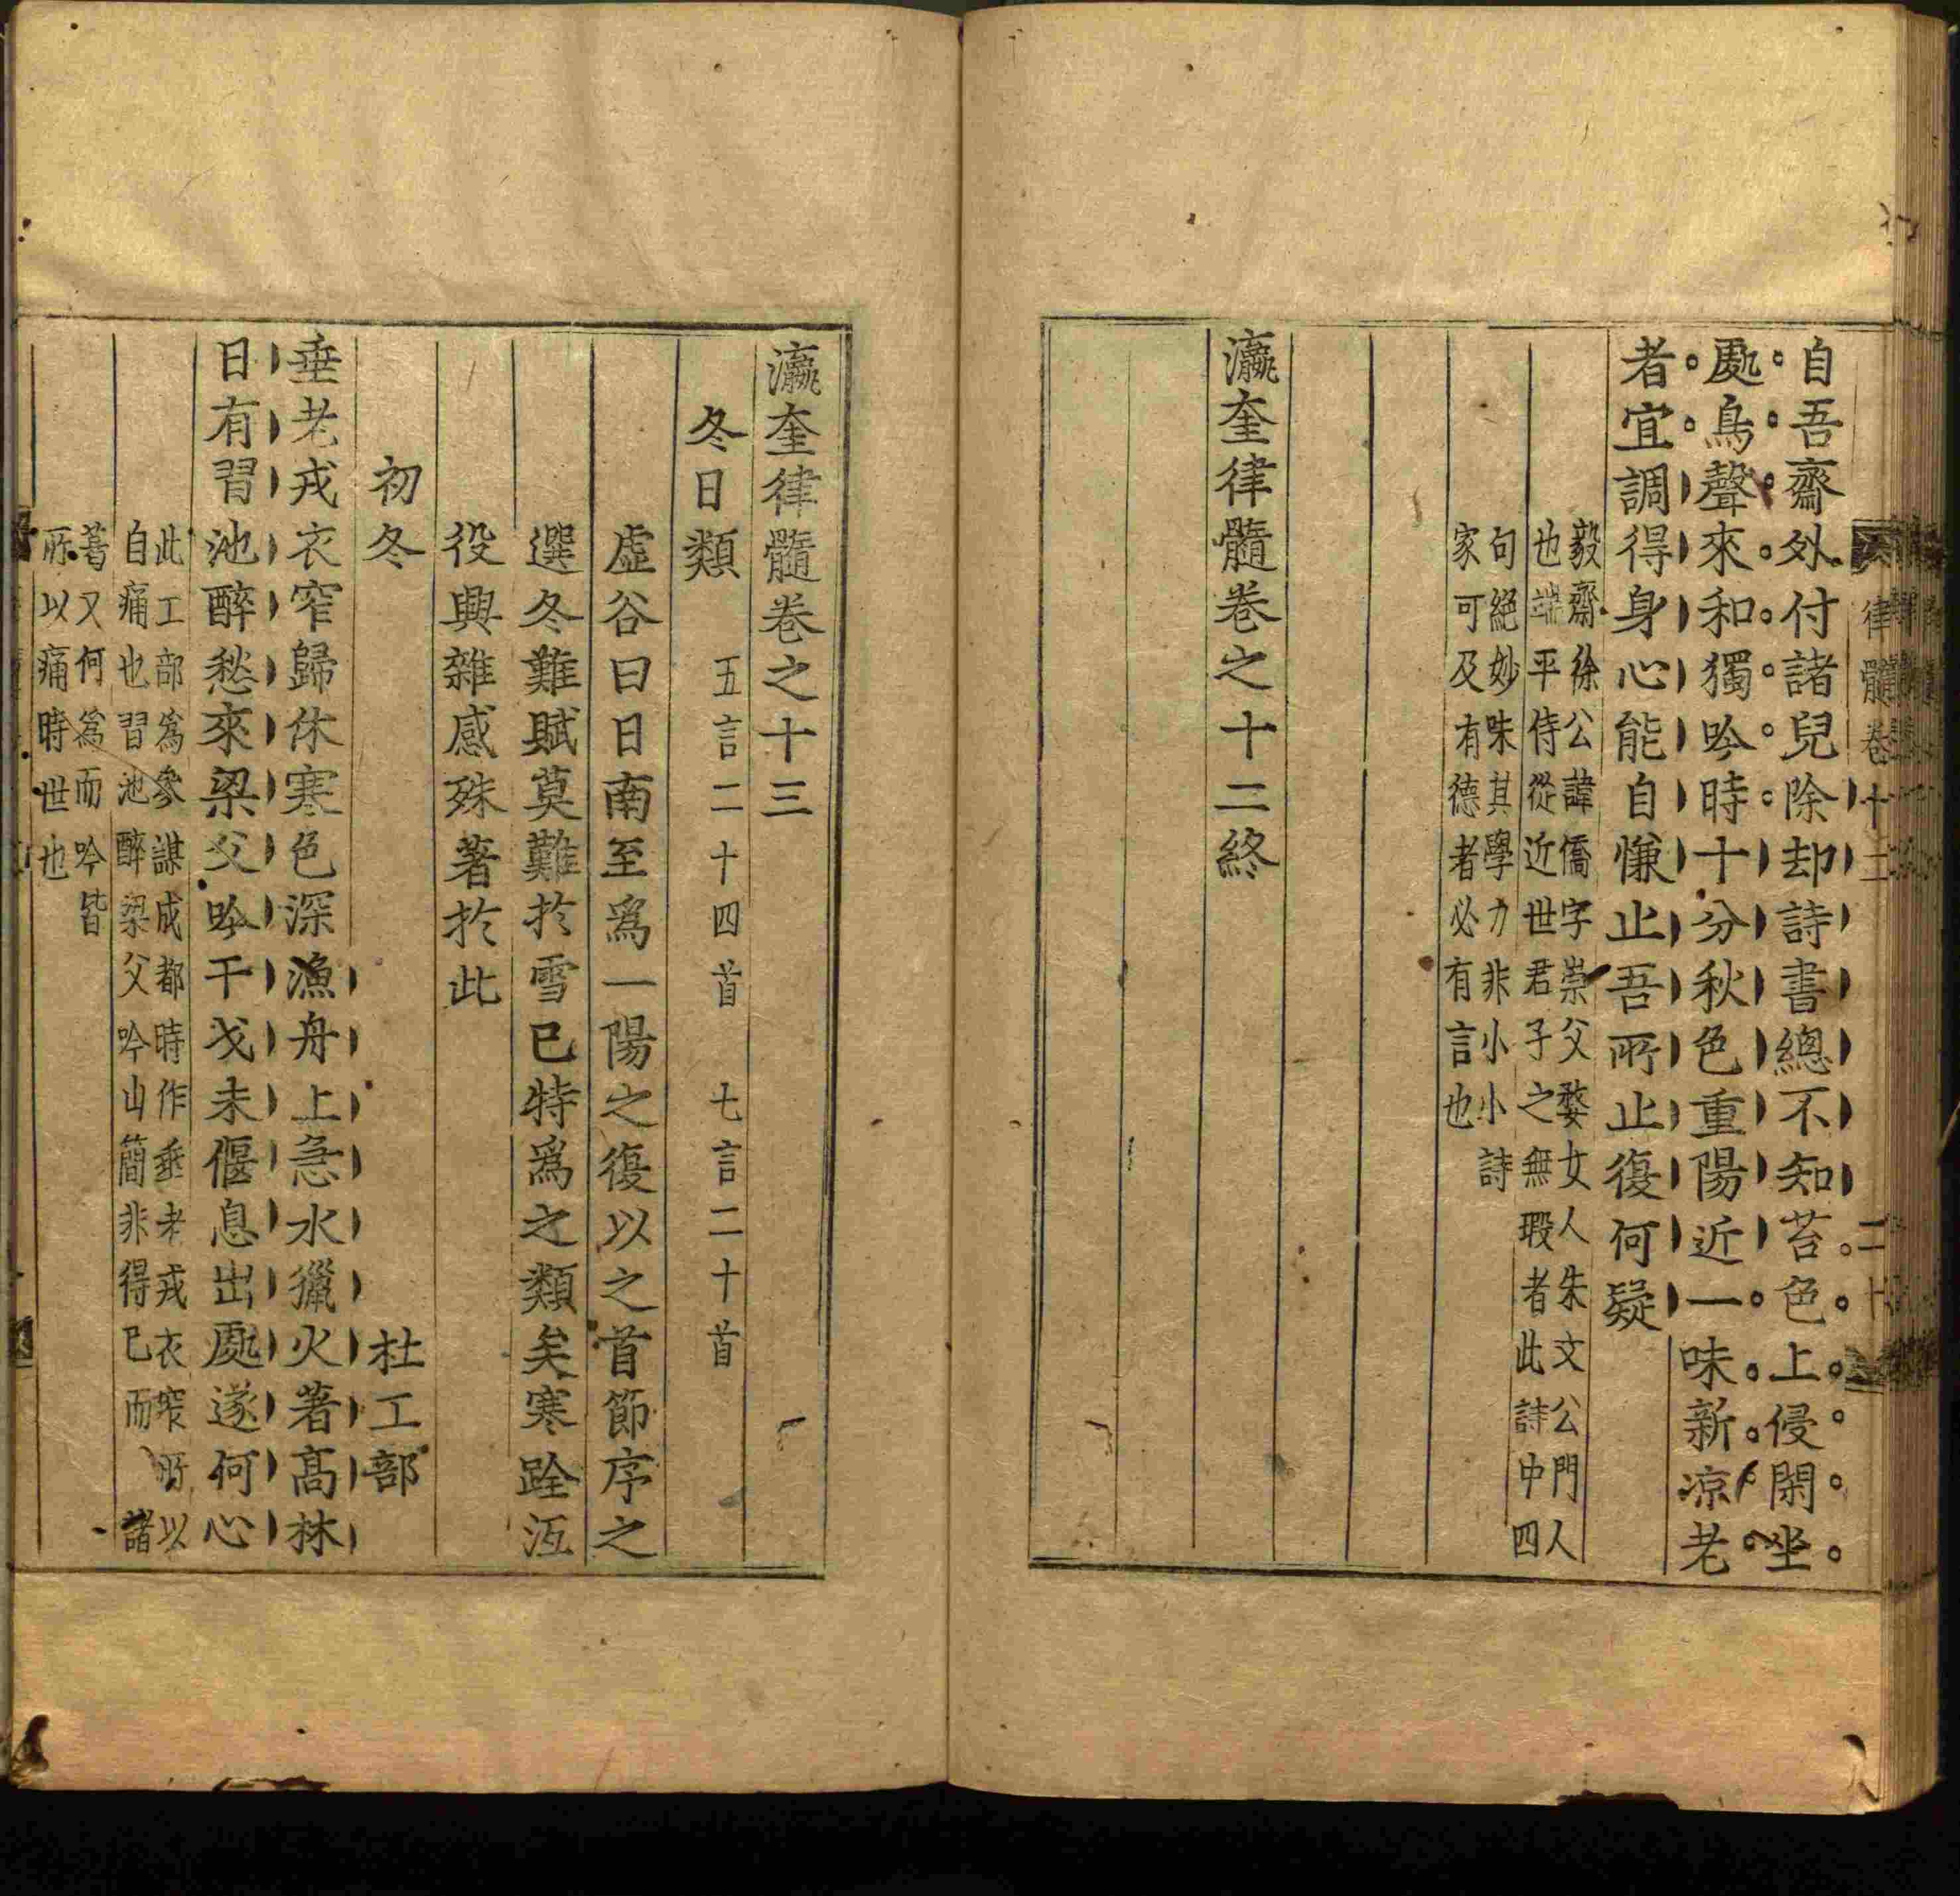 自吾齋外付諸兒除却詩書總不知苔色上侵閑坐
處鳥聲來和獨吟時十分秋色重陽近一味新凉老
者宜調得身心能自慊止吾所止復何疑
毅齋徐公諱僑字崇父婺女人朱文公門人
也端平侍從近世君子之無瑕者此詩中四
句絕妙味其學力非小小詩
家可及有德者必有言也
瀛奎律髓卷之十二終
律髓卷十二
二十
瀛奎律髓卷之十三
冬日類 五言二十四首 七言二十首
虛谷曰日南至爲一陽之復以之首節序之
選冬難賦莫難於雪已特爲之類矣寒跧沍
役興雜感殊著於此
初冬 杜工部
垂老戎衣窄歸休寒色深漁舟上急水獵火著高林
日有習池醉愁來梁父吟干戈未偃息出處遂何心
此工部爲參謀成都時作垂老戎衣窄所以
自痛也習池醉梁父吟山簡非得已而諸
葛又何爲而吟皆
所以痛時世也